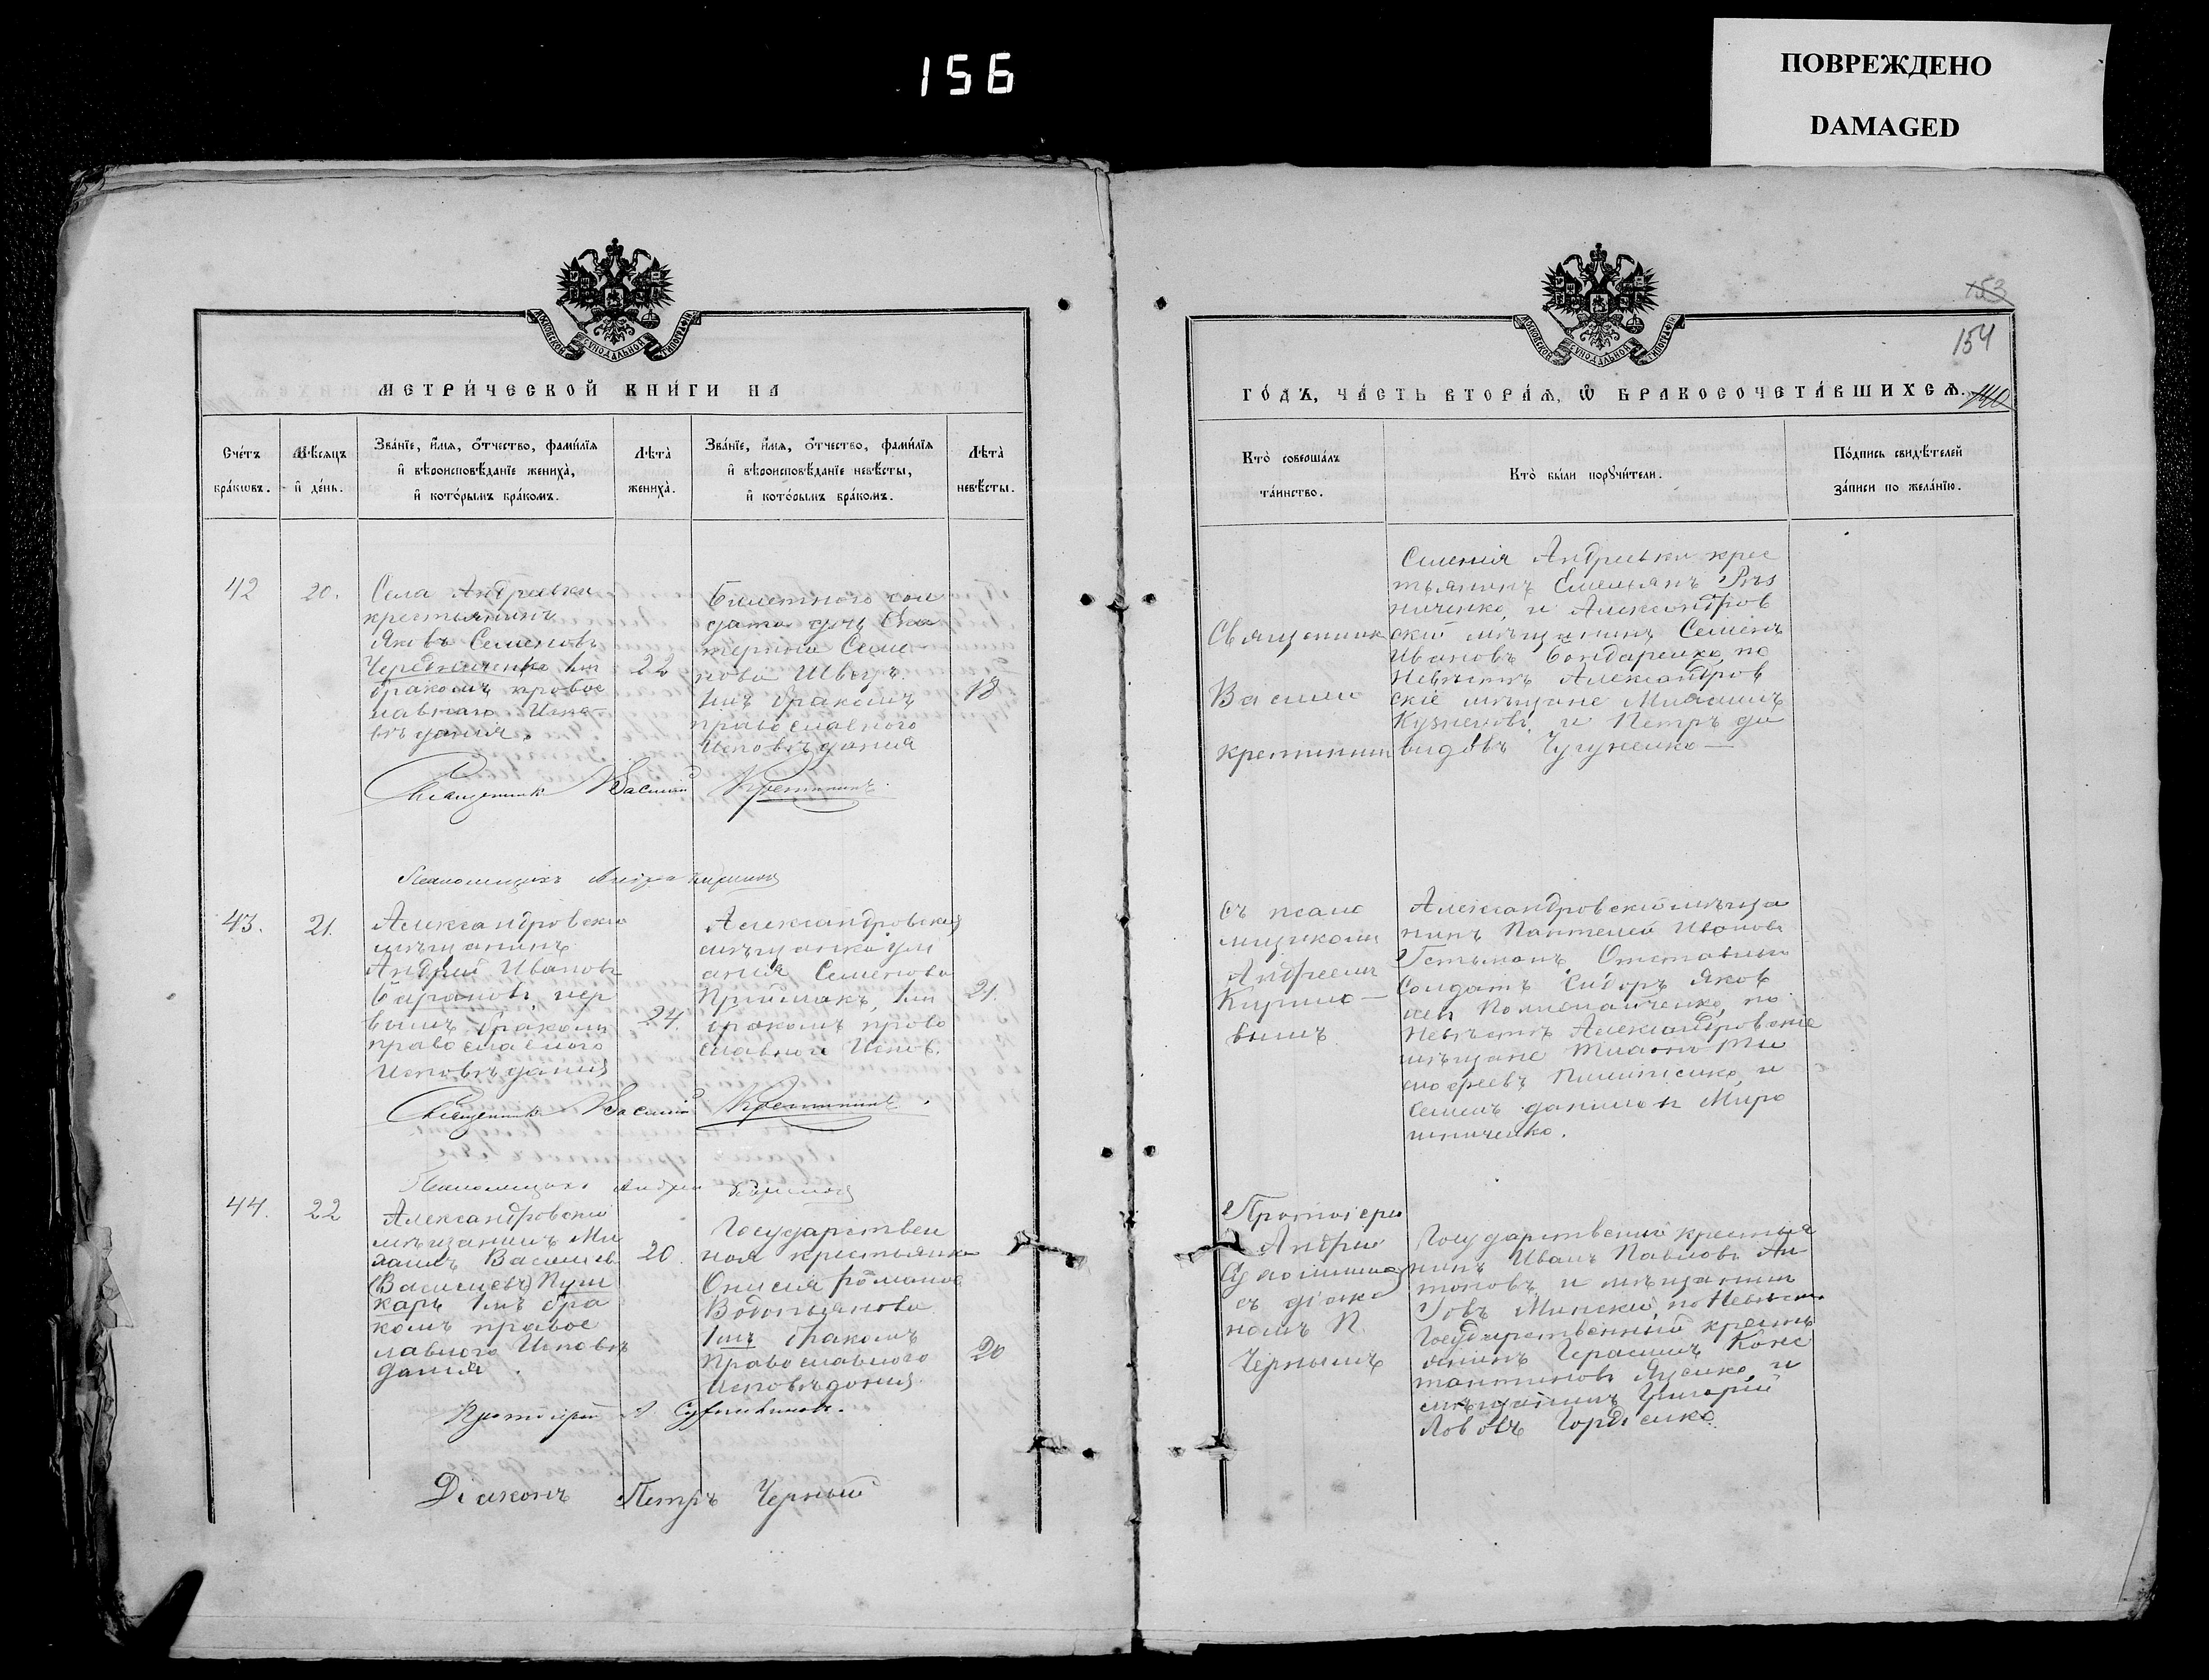 156
ПОВРЕЖДЕНО
DAMAGED
МОСКОВСКОЙ СѴНОДАЛЬНОЙ ТИПОГРАФІИ
МЕТРИ́ЧЕСКОЙ КНИ́ГИ НА
Сче́тъ бра́кѡвъ.
Мѣ́сѧцъ и҆ де́нь.
Зва́нїе, и҆́мѧ, ѻ҆́тчество, фами́лїѧ
и҆ вѣроисповѣ́данїе жениха̀,
и҆ кото́рымъ бра́комъ.
Лѣта̀ жениха̀.
Зва́нїе, и҆́мѧ, ѻ҆́тчество, фами́лїѧ
и҆ вѣроисповѣ́данїе невѣ́сты,
и҆ кото́рымъ бра́комъ.
Лѣта̀ невѣ́сты.
42
20.
Села Андреевки
крестьянинъ
Яковъ Семеновъ
Чередниченко 1мъ
бракомъ правос
лавнаго Испо-
вѣданія.
22
Билетного сол
дата дочь Ека
терина Семе-
нова Швецъ.
1мъ бракомъ
православного
Исповѣданія
18
Священникъ Василій Кремянинъ
Псаломщикъ Андрей Кириловъ
43.
21.
Александровскій
мѣщанинъ
Андрей Ивановъ
Барановъ, пер
вымъ бракомъ
православного
Исповѣданія
24.
Александровская
мѣщанка Іули
анія Семенова
Приймакъ, 1мъ
бракомъ право
славного Испов.
21.
Священникъ Василій
Псаломщикъ Андрей Кириловъ
44.
22
Александровскій
мѣщанинъ Ми
хаилъ Васильев
(Василиевъ) Пуш
карь 1мъ бра
комъ правос
лавного Исповѣ
данія.
20.
Государствен
ная крестьянка
Онисія Романова
Водопьянова
1мъ бракомъ
Православного
Исповѣданія.
20
Протоіерей А.
Діаконъ Петръ Черный
153
154
МОСКОВСКОЙ СѴНОДАЛЬНОЙ ТИПОГРАФІИ
ГО́ДЪ, ЧА́СТЬ ВТОРА́Ѧ, Ѡ҆ БРАКОСОЧЕТА́ВШИХСѦ.
140
Кто̀ соверша́лъ
та́инство.
Кто̀ бы́ли порꙋчи́тели.
По́дпись свидѣ́телей
за́писи по жела́нїю.
Священник
Василій
Селенія Андреевки крес
тьянинъ Емельянъ
и Александров
скій мѣщанинъ Семенъ
Ивановъ Бондаренко, по
Невѣстѣ Александров
скіе мѣщане
Кузнецовъ, и Петръ Да
видовъ Чугуненко
съ псало
мщикомъ
Андреемъ
Кирило-
вымъ
Александровскій мѣща
нинъ Пантелей Ивановъ
Гетьманъ Отставный
Солдатъ Сидоръ Яков
по
Невѣстѣ Александровскіе
мѣщане Ти
мофеевъ Пилипенко, и
Семенъ Данилов Миро
шниченко.
Протоіерей
Андрей
съ діако
номъ П.
Чернымъ
Государственный крестья
нинъ Иванъ Павловъ Ан
тоновъ и мѣщанинъ
Іовъ Минскій, по Невѣстѣ
Государственный кресть
янинъ Герасимъ Конс
тантиновъ и
мѣщанинъ Григорій
Гордіенко.